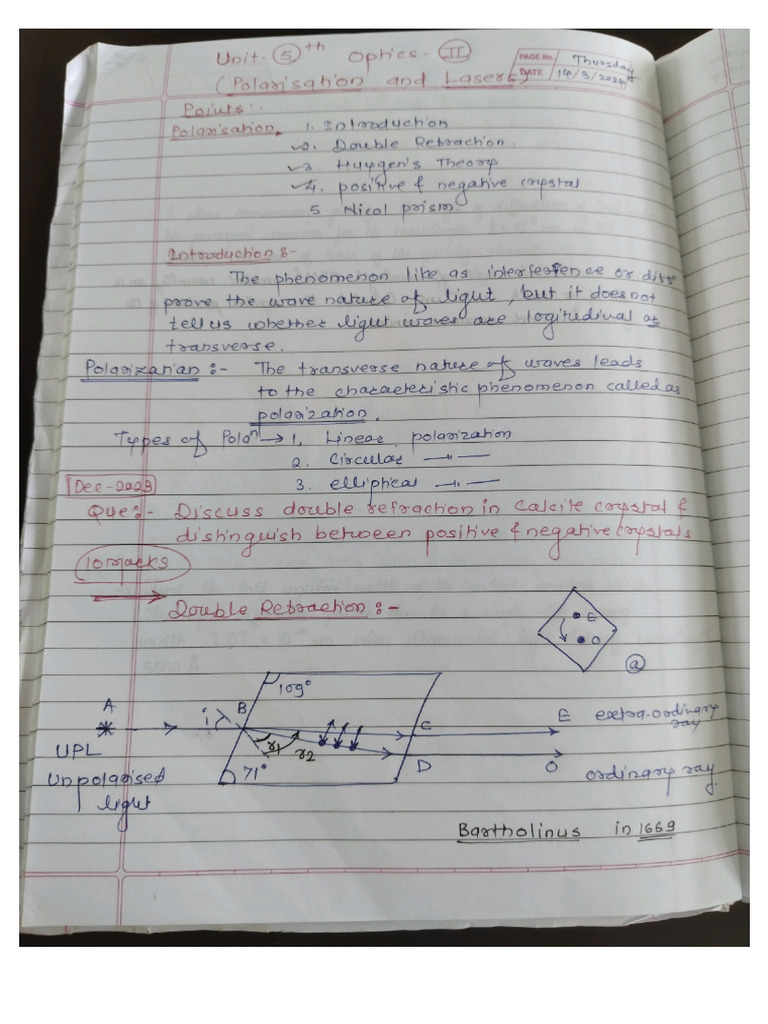 Unit - 5th Optics - II
(Polarisation and Lasers)
PAGE No.
DATE
Thursday
14/3/2024
Points :
Polarisation. 1. Introduction
✓2. Double Refraction.
✓3. Huygen's Theory
✓4. positive & negative crystal
5. Nicol prism.
Introduction :-
The phenomenon like as interference or diff
prove the wave nature of light, but it does not
tell us whether light waves are logitudinal or
transverse.
Polarization :- The transverse nature of waves leads
to the characteristic phenomenon called as
polarization.
Types of Polaⁿ → 1. Linear polarization
2. Circular —〃—
3. elliptical —〃—
[Dec-2023]
Que :- Discuss double refraction in Calcite crystal &
distinguish between positive & negative crystals
10 marks
Double Refraction :-
E
O
a
109°
A
B
i
r1
r2
C
E
extra-ordinary
ray
UPL
71°
D
O
ordinary ray.
Unpolarised
light
Bartholinus in 1669